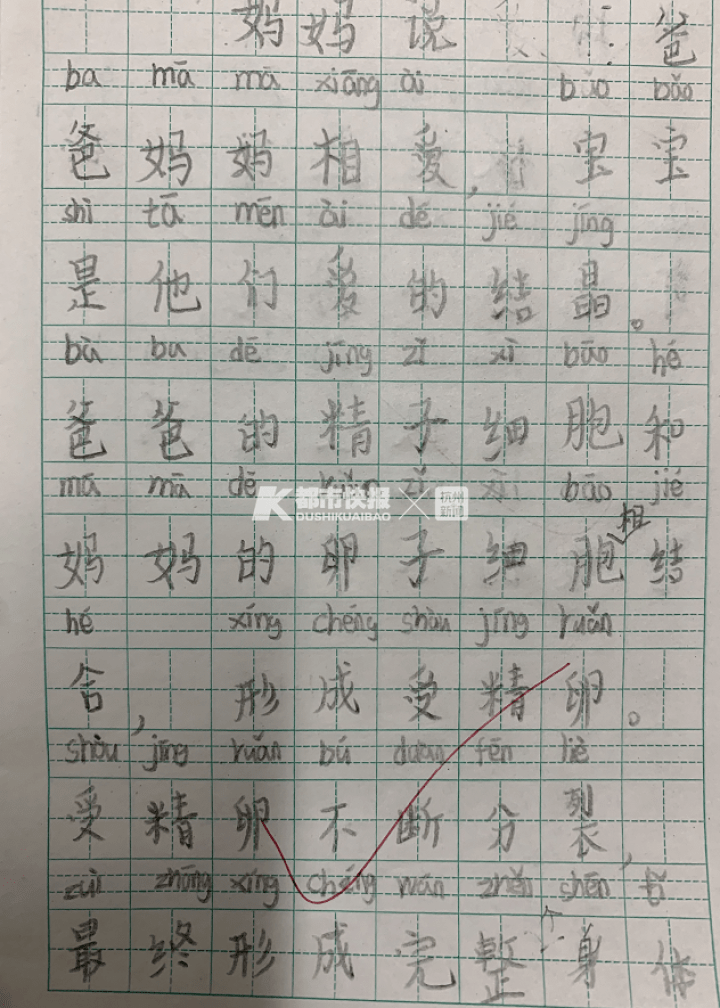 妈妈说：爸
ba mā mā xiāng ài bǎo bǎo
爸妈妈相爱，宝宝
shì tā mēn ài dē jié jīng
是他们爱的结晶。
bà ba dē jīng zǐ xì bāo hé
爸爸的精子细胞和
mā mā dē zǐ xì bāo jié
K 都市快报 DUSHIKUAIBAO × 杭州新闻
组
妈妈的卵子细胞结
hé xíng chéng shòu jīng ruǎn
合，形成受精卵。
shòu jīng ruǎn bú duàn fēn liè
受精卵不断分裂，
zuì zhōng xíng chéng wán zhěn shēn tǐ
个
最终形成完整身体